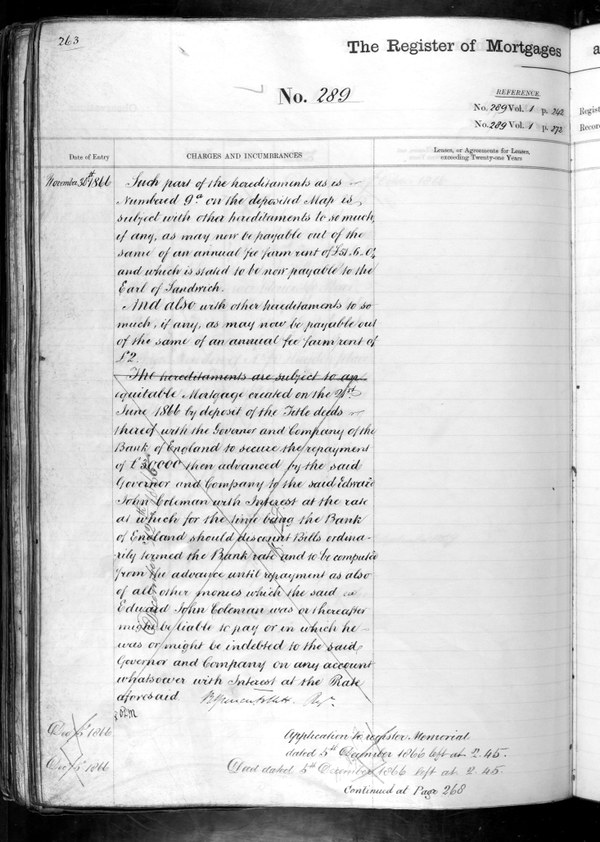 263
The Register of Mortgages
No. 289
REFERENCE.
No. 289 Vol. 1 p. 262
No. 289 Vol. 1 p. 272
Date of Entry
CHARGES AND INCUMBRANCES
Leases, or Agreements for Leases, exceeding Twenty-one Years
November 30th 1866
Such part of the hereditaments as is
Numbered 9a on the deposited Map is,
subject with other hereditaments to so much,
if any, as may now be payable out of the
same of an annual fee farm rent of
and which is stated to be now payable to the
Earl of Sandwich.
And also with other hereditaments to so
much, if any, as may now be payable out
of the same of an annual fee farm rent of
£2.
The hereditaments are subject to an
equitable Mortgage created on the 21st
June 1866 by deposit of the Title deeds
thereof with the Governor and Company of the
Bank of England to secure the repayment
of £30000 then advanced by the said
Governor and Company to the said Edward
John Coleman with Interest at the rate
at which for the time being the Bank
of England should discount Bills ordina-
rily termed the Bank rate and to be computed
from the advance until repayment as also
of all other monies which the said
Edward John Coleman was or thereafter
might be liable to pay or in which he
was or might be indebted to the said
Governor and Company on any account
whatsoever with Interest at the Rate
aforesaid
Dec 5 1866
Application to register Memorial
dated 5th December 1866 left at 2.45.
Dec 5 1866
Deed dated 5th December 1866 left at 2.45.
Continued at Page 268
Regist
Recor